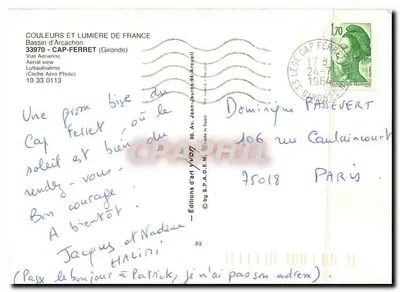 COULEURS ET LUMIERE DE FRANCE
Bassin d'Arcachon
33970 - CAP-FERRET (Gironde)
Vue Aérienne
Aerial view
Luftaufnahme
(Cliché Aéro Photo)
10 33 0113
Une prom bise du
Cap Ferret, où le
soleil est bien du
rendez-vous.
Bon courage.
A bientôt.
Jacques et Nadine
HALIMI
(Passe le bonjour à Patrick, je n'ai pas son adresse).
Editions d'art yvon
© by S.P.A.D.E.M.
82
1,70
LEGE CAP FERRET
17 H
24-
GIRONDE
Dominique PASSEVERT
106 rue Caulaincourt
75018 PARIS